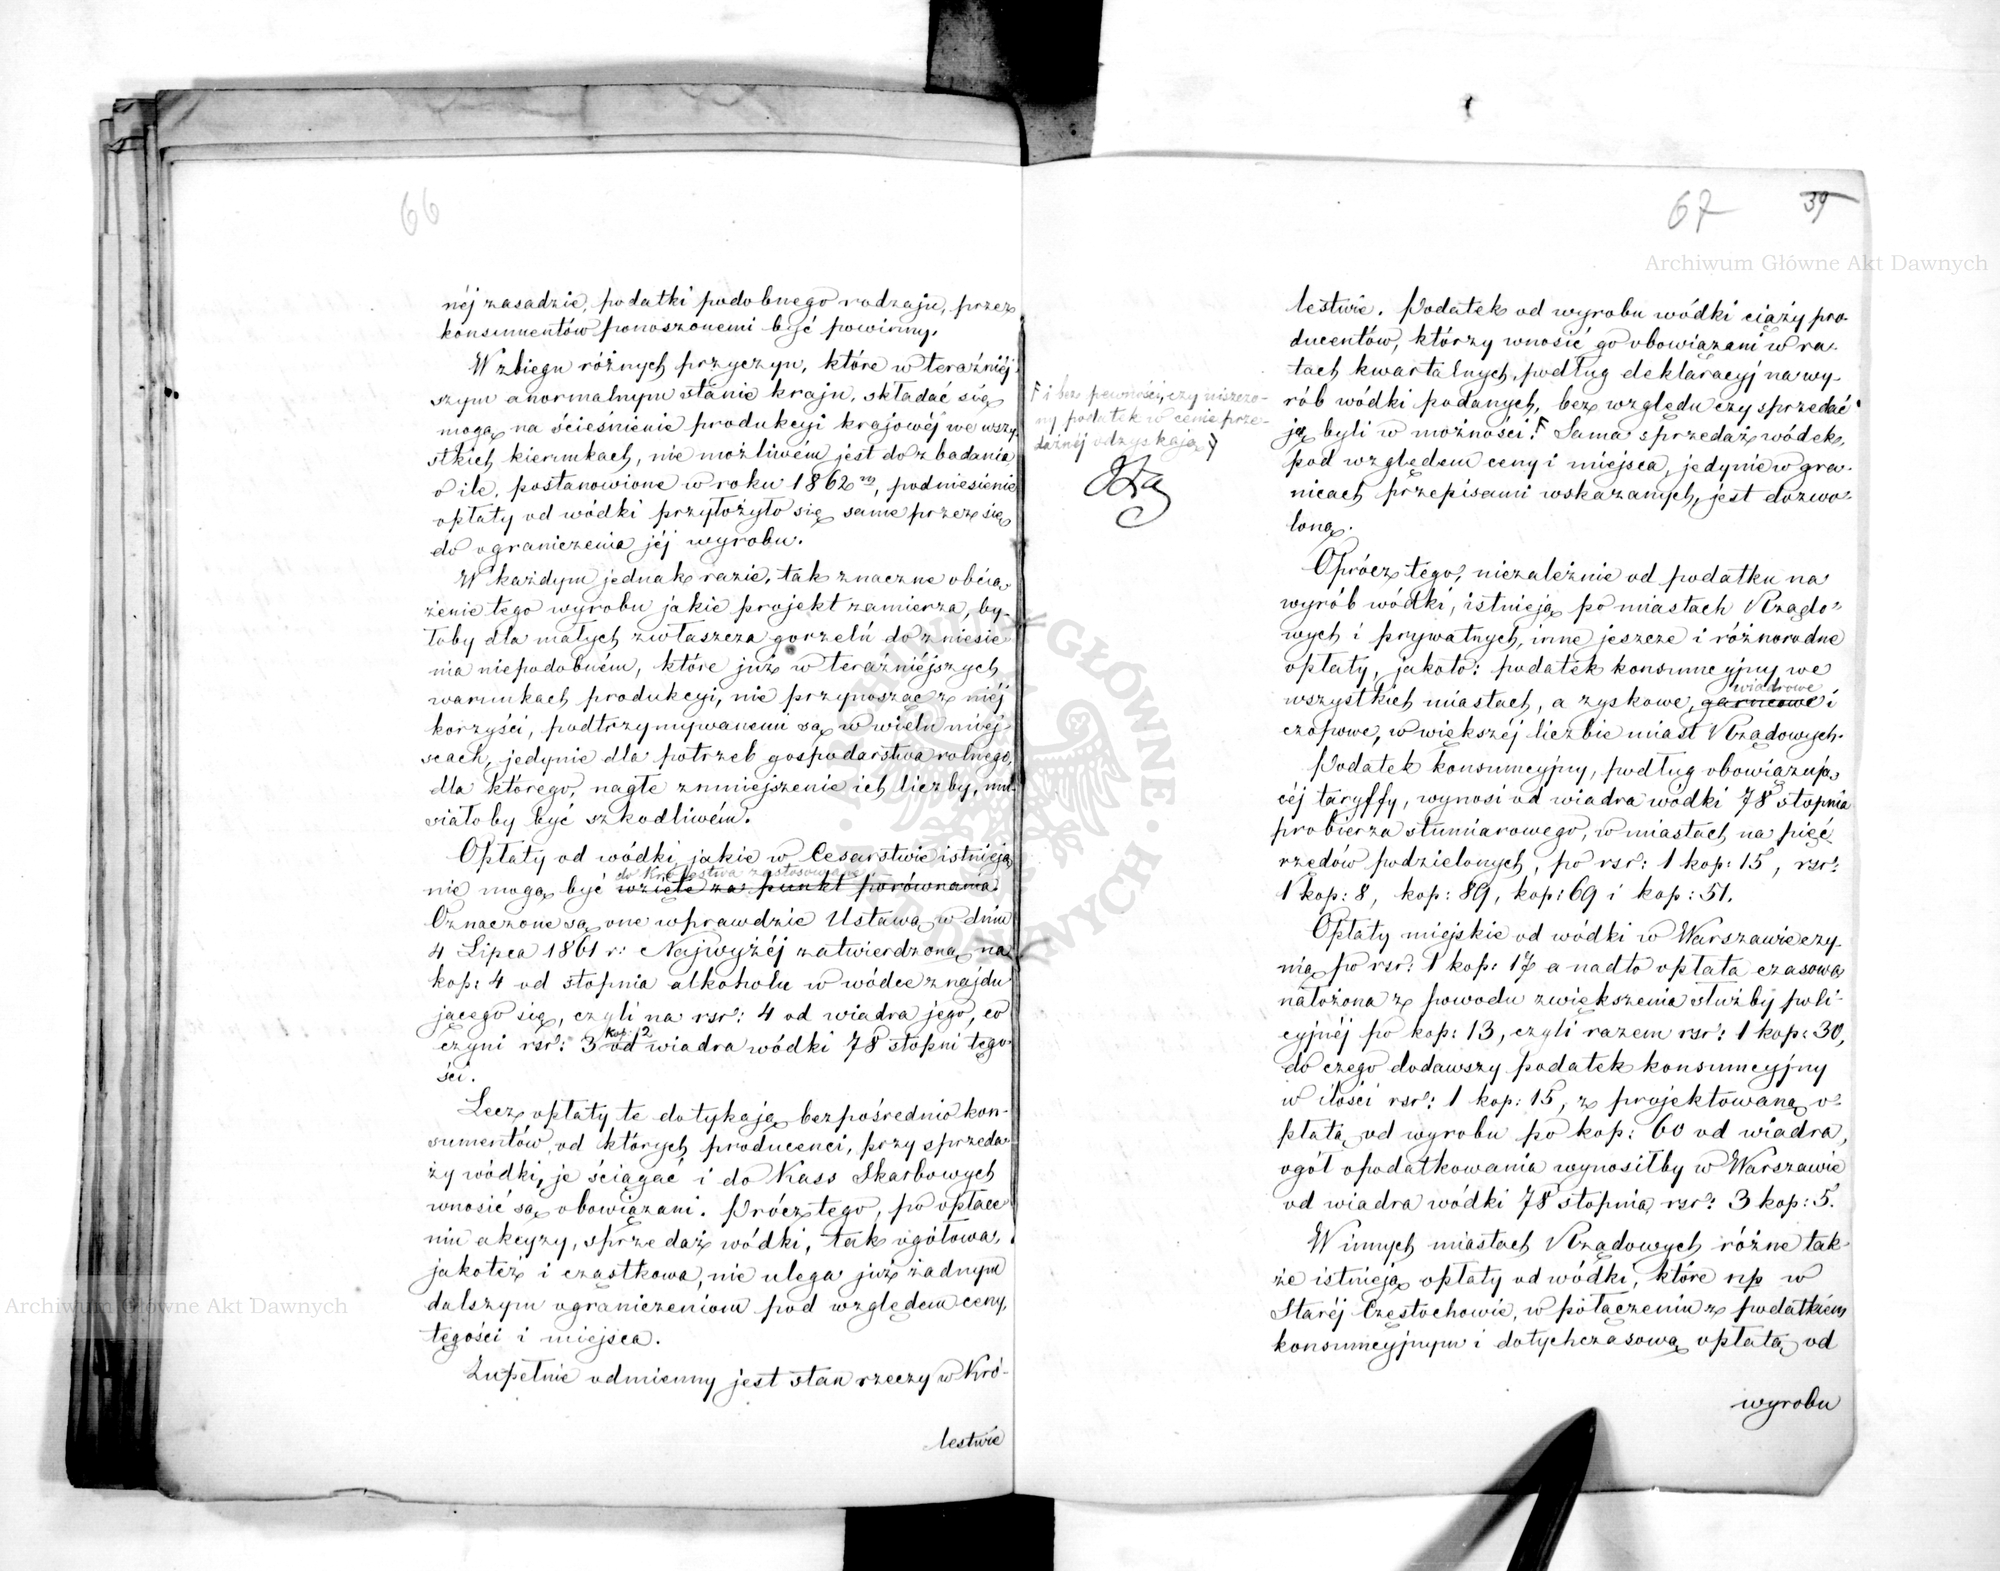 66
néj zasadzie, podatki podobnego rodzaju, przez
konsumentów ponoszonemi być powinny.
W zbiegu różnych przyczyn, które w teraźniéj-
szym anormalnym stanie kraju, składać się
mogą na ścieśnienie produkcyi krajowéj we wszy-
stkich kierunkach, nie możliwém jest do zbadania
o ile, postanowione w roku 1862m, podniesienie
opłaty od wódki przyłożyło się same przez się
do ograniczenia jéj wyrobu.
W każdym jednak razie, tak znaczne obcią-
żenie tego wyrobu jakie projekt zamierza, by-
łoby dla małych zwłaszcza gorzelń do zniesie
nia niepodobném, które już w teraźniéjszych
warunkach produkcyi, nie przynosząc z niéj
korzyści, podtrzymywanemi są w wielu miej-
scach, jedynie dla potrzeb gospodarstwa rolnego,
dla którego, nagłe zmniejszenie ich liczby, mu-
siałoby być szkodliwém.
Opłaty od wódki jakie w Cesarstwie istnieją
do Królestwa zastosowane
nie mogą być wzięte za punkt porównania.
Oznaczone są one wprawdzie Ustawą w dniu
4 Lipca 1861 r: Najwyżéj zatwierdzoną na
kop: 4 od stopnia alkoholu w wódce znajdu
jącego się, czyli na rsr: 4 od wiadra jego, co
kop: 12
czyni rsr: 3 od wiadra wódki 78 stopni tęgo-
ści.
Lecz opłaty te dotykają bezpośrednio kon-
sumentów, od których producenci, przy sprzeda-
ży wódki, je ściągać i do Kass Skarbowych
wnosić są obowiązani. Prócz tego, po opłace-
niu akcyzy, sprzedaż wódki, tak ogółowa,
jakotéż i cząstkowa, nie ulega już żadnym
dalszym ograniczeniom pod względem ceny,
tęgości i miejsca.
Zupełnie odmienny jest stan rzeczy w Kró-
lestwie
67 39
i bez pewności, czy niszczo-
ny podatek w cenie prze-
dażnéj odzyskają
lestwie. Podatek od wyrobu wódki ciąży pro-
ducentów, którzy wnosić go obowiązani w ra-
tach kwartalnych, podług deklaracyj na wy-
rób wódki podanych, bez względu czy sprzedać
ją byli w możności. Sama sprzedaż wódek,
pod względem ceny i miejsca, jedynie w gra-
nicach przepisami wskazanych, jest dozwo-
loną.
Oprócz tego, niezależnie od podatku na
wyrób wódki, istnieją po miastach Rządo-
wych i prywatnych, inne jeszcze i różnorodne
opłaty, jakoto: podatek konsumcyjny we
wszystkich miastach, a zyskowe, garncowe i
wiadrowe
czopowe, w większéj liczbie miast Rządowych.
Podatek konsumcyjny, podług obowiązują-
céj taryffy, wynosi od wiadra wódki 78 stopnia
probierza stumiarowego, w miastach na pięć
rzędów podzielonych, po rsr: 1 kop: 15, rsr:
1 kop: 8, kop: 89, kop: 69 i kop: 51.
Opłaty miejskie od wódki w Warszawie czy-
nią po rsr: 1 kop: 17 a nadto opłata czasowa
nałożona z powodu zwiększenia służby poli-
cyjnéj po kop: 13, czyli razem rsr: 1 kop: 30,
do czego dodawszy podatek konsumcyjny
w ilości rsr: 1 kop: 15, z projektowaną o-
płatą od wyrobu po kop: 60 od wiadra,
ogół opodatkowania wynosiłby w Warszawie
od wiadra wódki 78 stopnia rsr: 3 kop: 5.
W innych miastach Rządowych różne tak-
że istnieją opłaty od wódki, które np w
Staréj Częstochowie, w połączeniu z podatkiem
konsumcyjnym i dotychczasową opłatą od
wyrobu
Archiwum Główne Akt Dawnych
Archiwum Główne Akt Dawnych